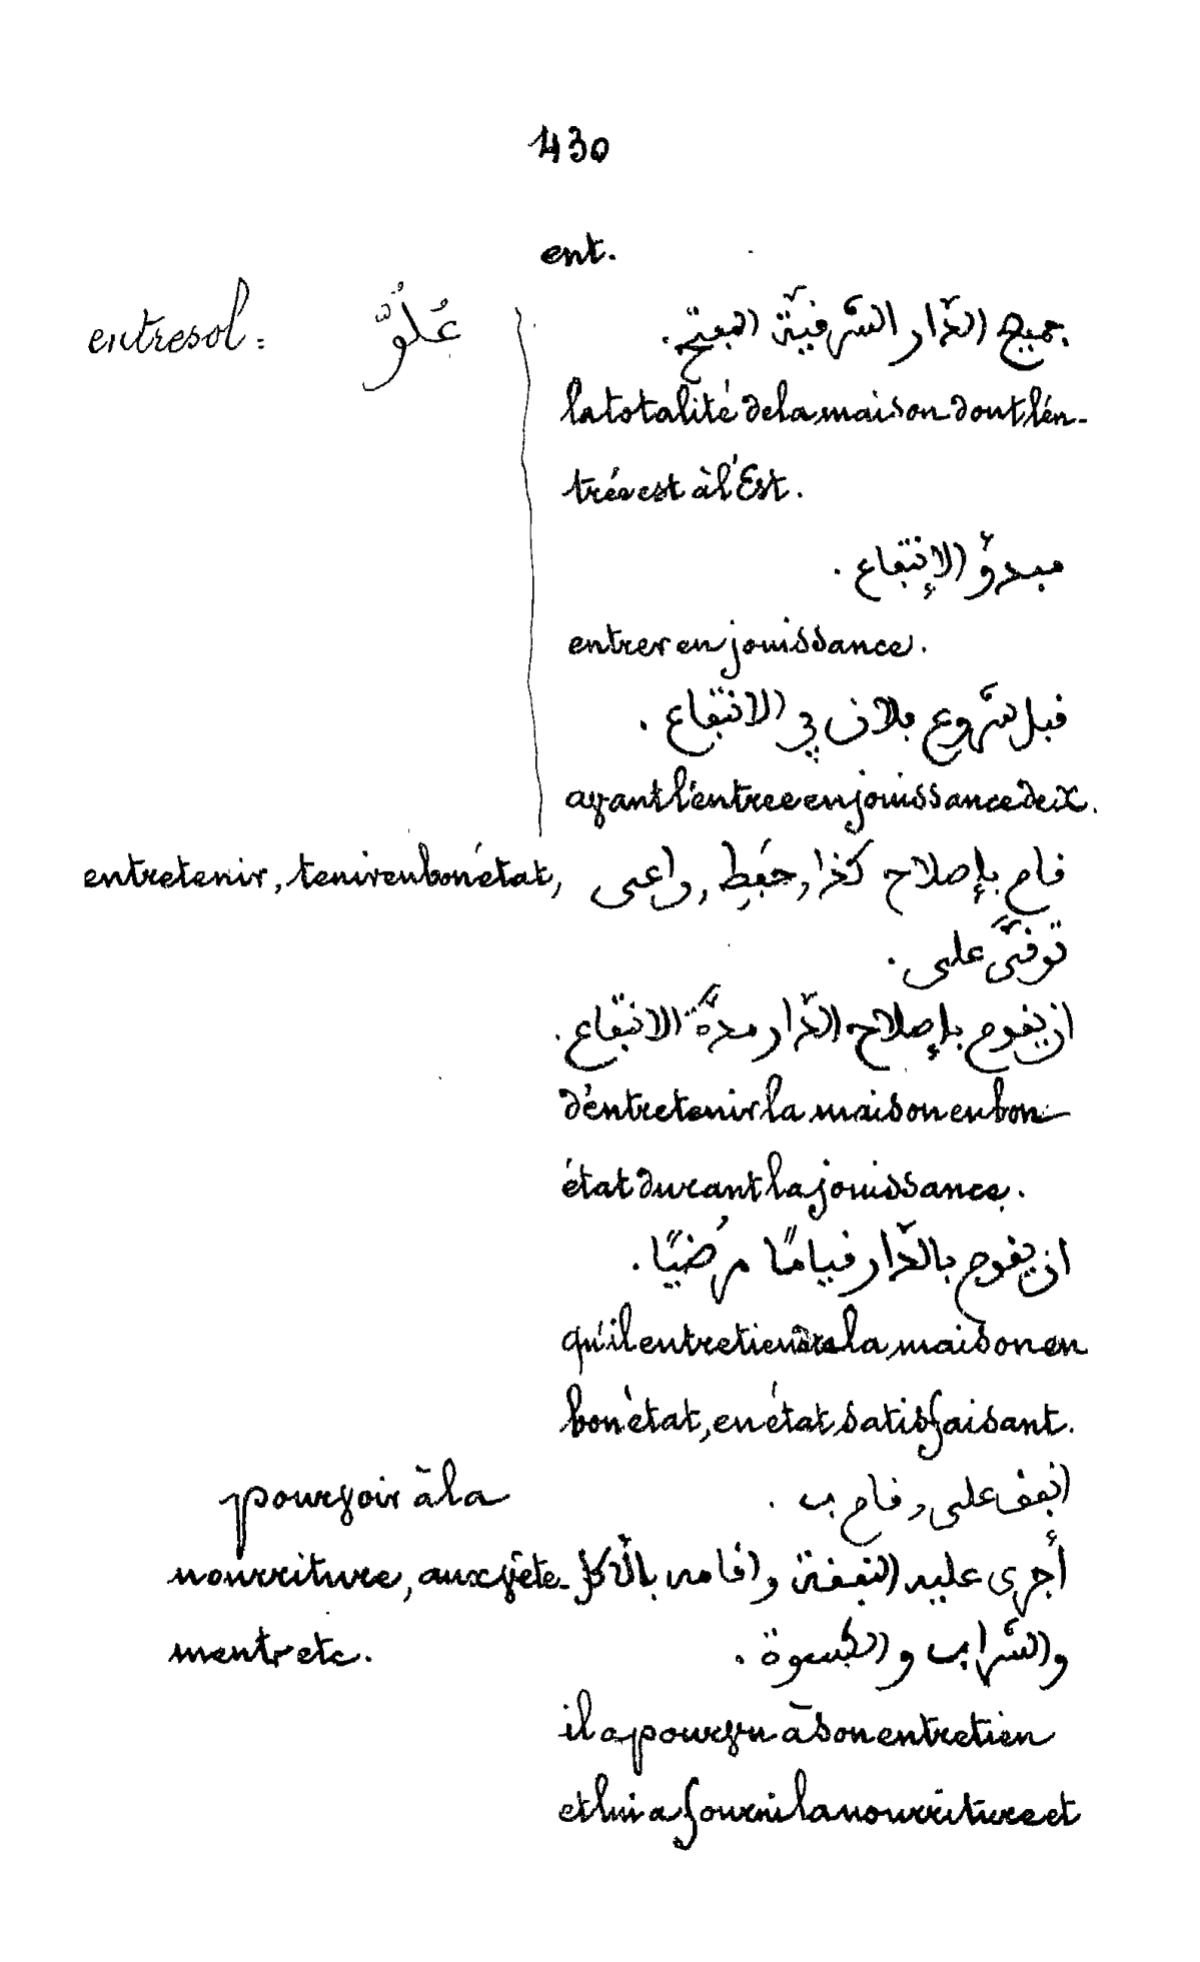 430
ent.
entresol : عُلُوّ
جميع الدّار الشّرفيّة المفتح.
la totalité de la maison dont l'en-
trée est à l'Est.
مبدؤ الإنتفاع.
entrer en jouissance.
قبل شروع فلان في الانتفاع.
avant l'entree en jouissance de X.
entretenir, tenir en bon état, قام بإصلاح كذا, حَفِظ, راعى
توقّى على.
ان يقوم بإصلاح الدّار مدّة الانتفاع.
d'entretenir la maison en bon
état durant la jouissance.
ان يقوم بالدّار قيامًا مرضيًا.
qu'il entretiendra la maison en
bon état, en état satisfaisant.
pourvoir à la انفق على وقام ب.
nourriture, aux vête- أجرى عليه النفقة واقامه بالأكل
ments etc. والشّراب والكسوة.
il a pourvu à son entretien
et lui a fourni la nourriture et